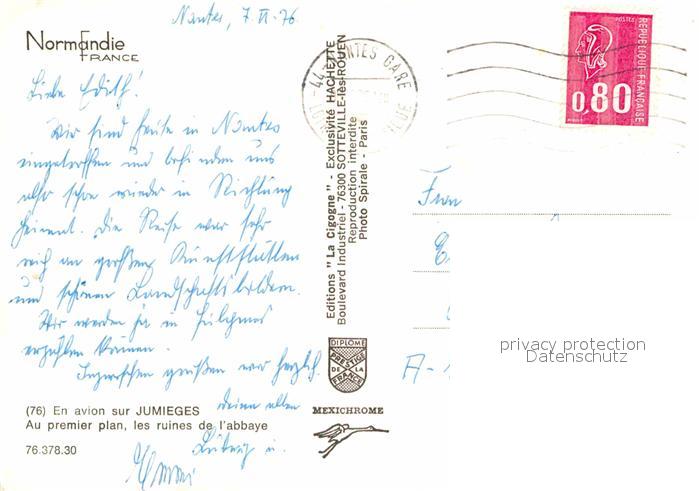 Nantes, 7.VI.76
Normandie
FRANCE
Liebe Edith!
Wir sind heute in Nantes
eingetroffen und befinden uns
also schon wieder in Richtung
Heimat. Die Reise war sehr
reich an großen Kunststätten
und schönen Landschaftsbildern.
Wir werden ja in
erzählen können.
Inzwischen grüßen wir herzl.
(76) En avion sur JUMIEGES
Au premier plan, les ruines de l'abbaye
76.378.30
Ludwig u.
Emmi
Editions "La Cigogne" - Exclusivité HACHETTE
Boulevard Industriel - 76300 SOTTEVILLE-lès-ROUEN
Reproduction interdite
Photo Spirale - Paris
DIPLOME
PRESTIGE
DE LA
FRANCE
MEXICHROME
44 NANTES GARE
POSTES
RÉPUBLIQUE FRANÇAISE
0,80
Frau
A-
privacy protection
Datenschutz